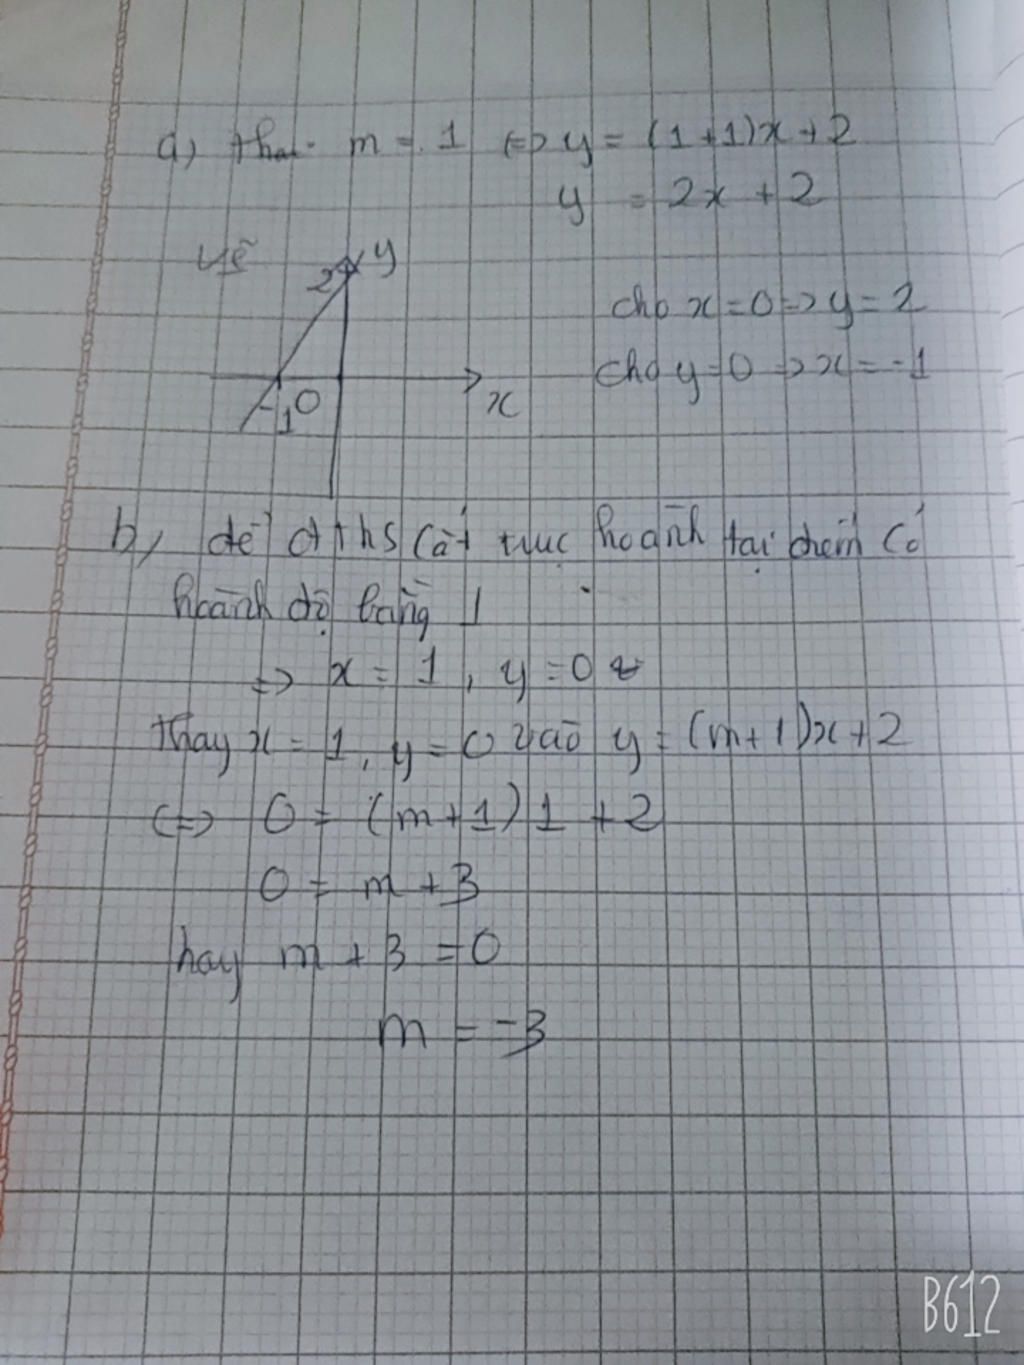 a) thai m = 1 <=> y = (1+1)x + 2
y = 2x + 2
vẽ
y
2
cho x = 0 => y = 2
cho y = 0 => x = -1
x
-1 O
b, để đths cắt trục hoành tại điểm có
hoành độ bằng 1
=> x = 1, y = 0
thay x = 1, y = 0 vào y = (m+1)x + 2
<=> 0 = (m+1)1 + 2
0 = m + 3
hay m + 3 = 0
m = -3
B612